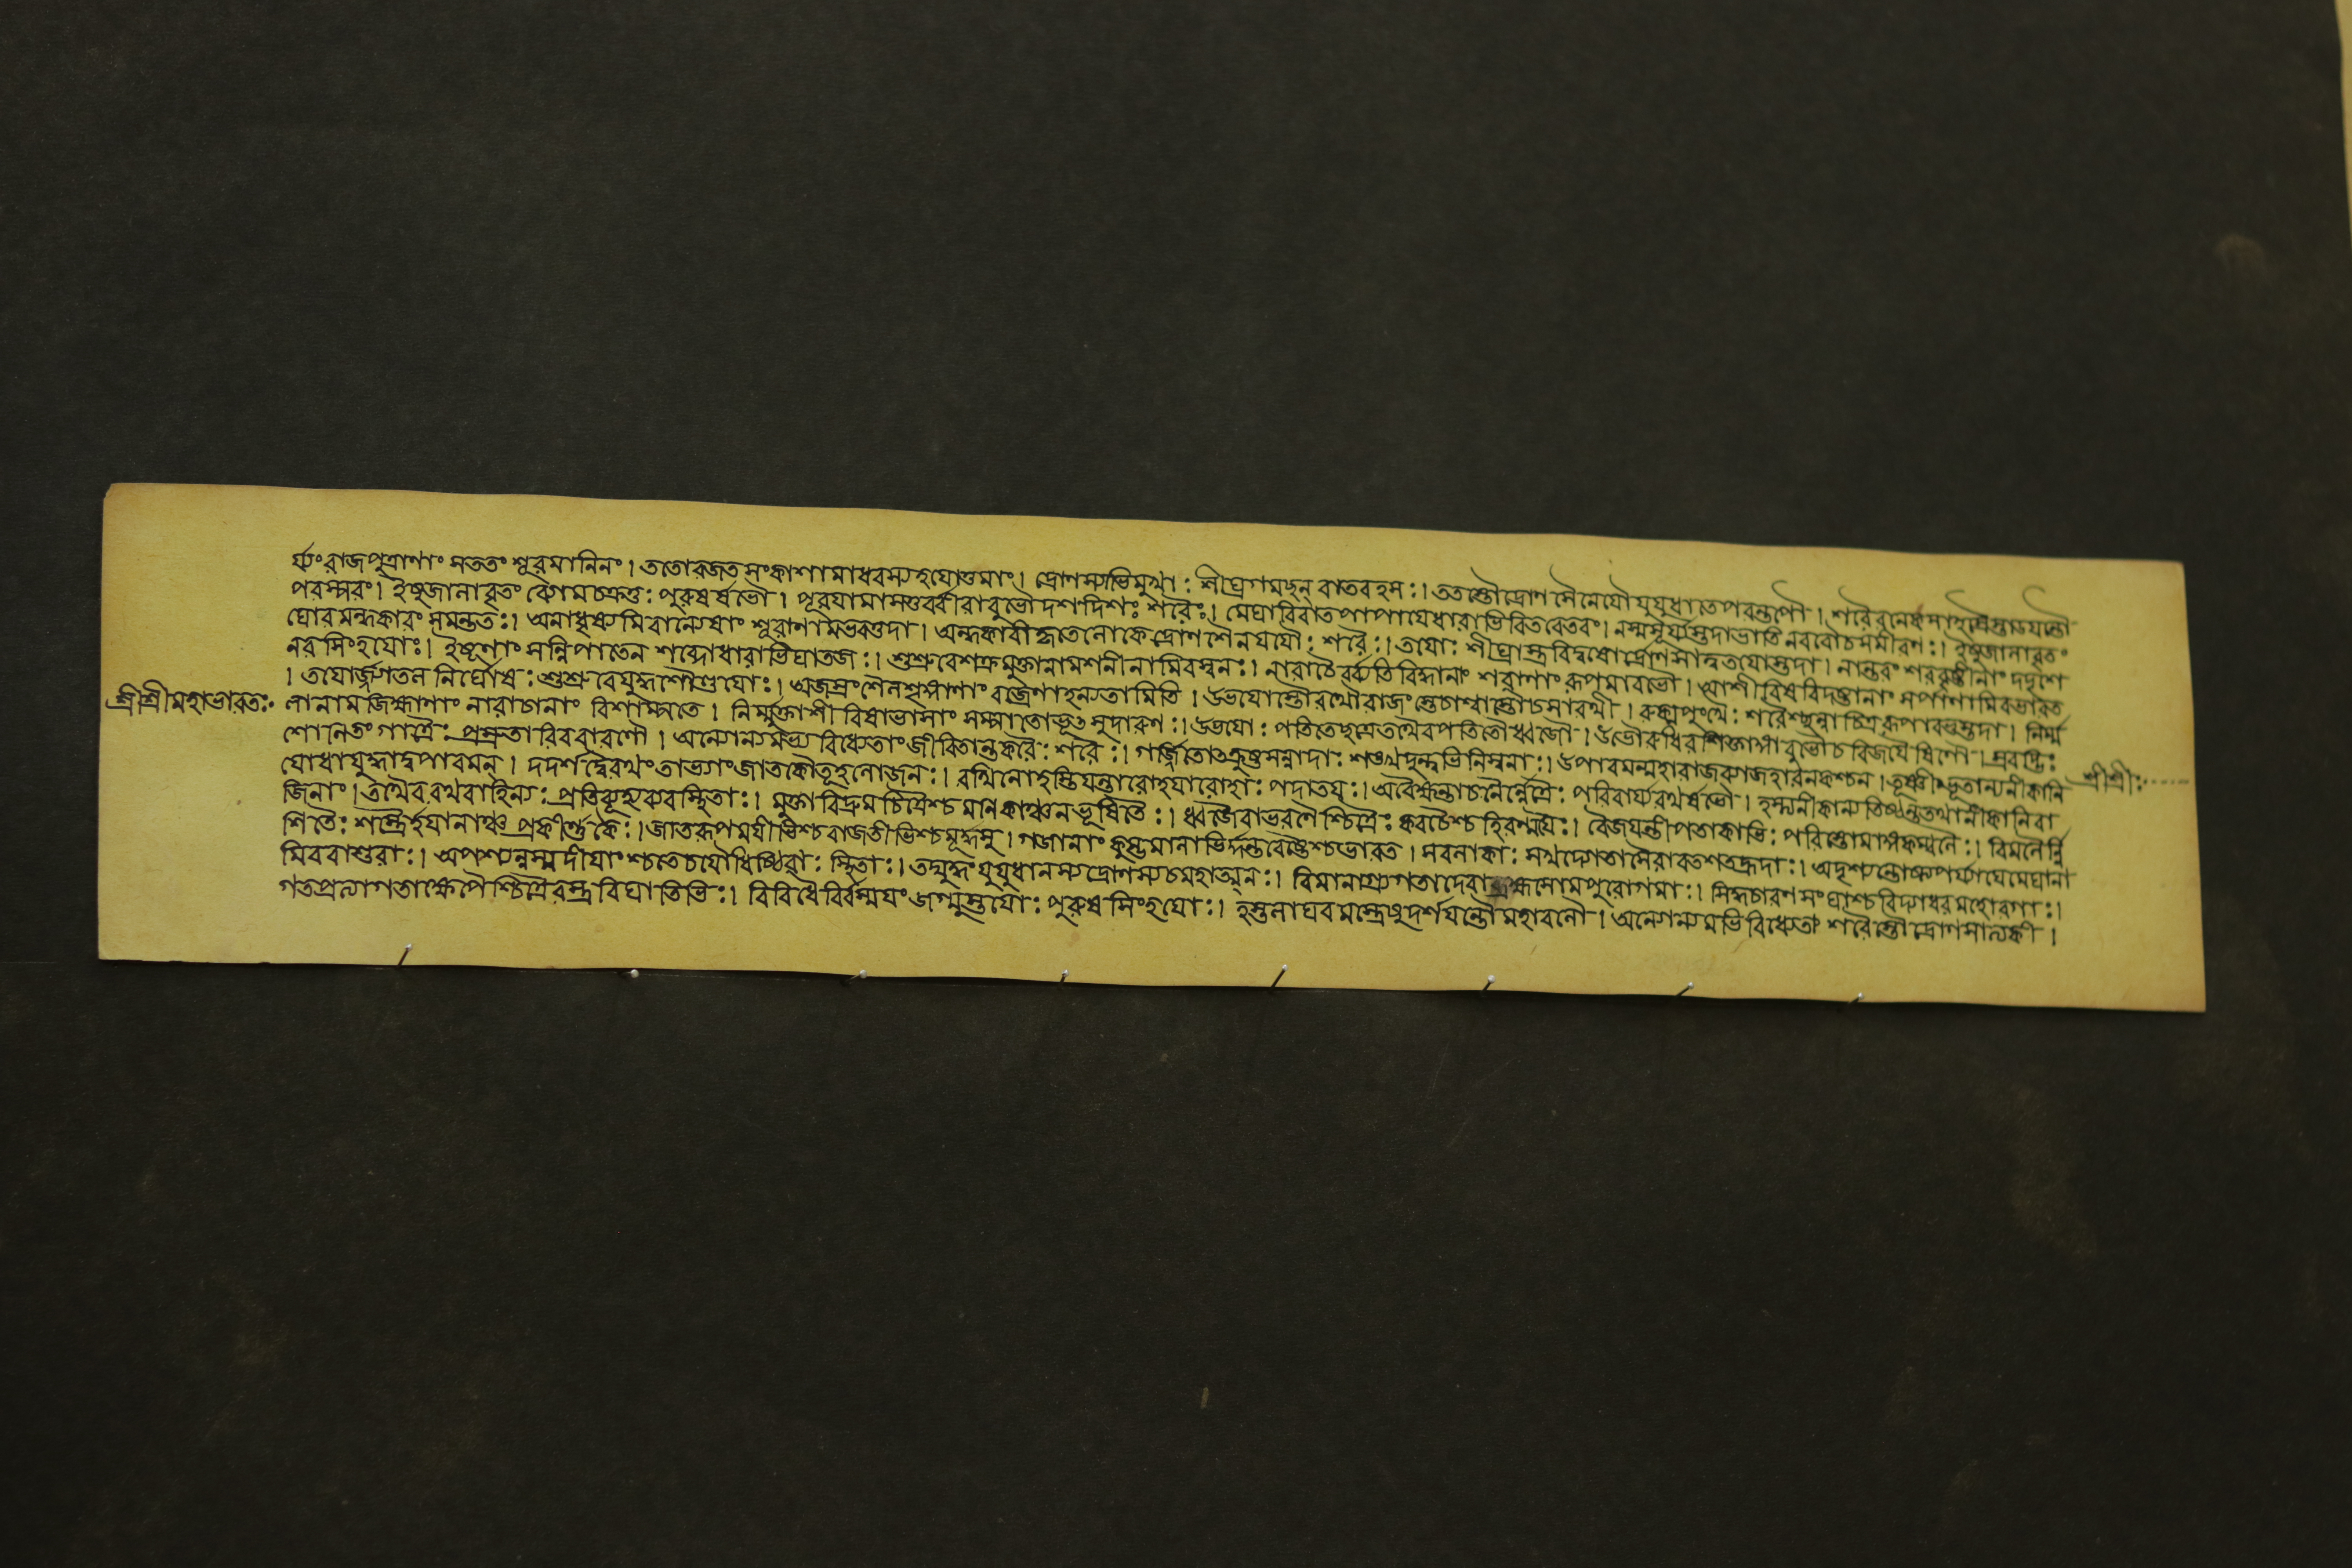 র্য্যং রাজপুত্রাণাং সততং শূরমানিনং। ততো রজতসংকাশা মাধবস্য হযোত্তমাং। দ্রোণস্যাভিমুখা: শীঘ্রগমছন্ বাতবহস:। ততস্তৌ দ্রোণসৈনেযৌ যুযুধাতে পরন্তপৌ। শরৈরনেকসাহস্রৈস্তাডযন্তৌ
পরস্পরং। ইষুজানাবৃতং ব্যোম চক্রতু: পুরুষর্ষভৌ। পূরযামাসতুর্বীরাবুভৌ দশ দিশঃ শরৈঃ। মেঘাবিবাতপাপাযে ধারাভিরিতরেতরং। নস্মসূর্য্যস্তদা ভাতি নববৌচ সমীরণ:। ইষুজানাবৃতং
ঘোরমন্ধকারং সমন্ততঃ। অনাধৃষ্যমিবান্যেষাং শূরাণামভবত্তদা। অন্ধকারীকৃতে লোকে দ্রোণশৈনযযৌ: শরৈ:। তযো: শীঘ্রাস্ত্রবিদুষোর্দ্রোণসাত্বতযোস্তদা। নান্তরং শরবৃষ্টীনাং দদৃশে
নরসিংহযোঃ। ইষূণাং সন্নিপাতেন শব্দোধারাভিঘাতজ:। শুশ্রুবে শক্রমুক্তানামশনীনামিবস্বন:। নারাচৈর্ব্যতিবিদ্ধানাং শরাণাং রূপমাবভৌ। আশীবিষবিদষ্টানাং সর্পাণামিব ভারত
। তযোর্জ্যাতলনির্ঘোষ: শুশ্রুবে যুদ্ধশৌণ্ডযোঃ। অজস্রং শৈলশৃঙ্গাণাং বজ্রেণাহন্যতামিতি। উভযোস্তৌ রথৌ রাজংস্তে চাশ্বাস্তৌ চ সারথী। রুক্মপুংখৈ: শরৈশ্ছন্নাশ্চিত্ররূপা বভুস্তদা। নির্ম্ম
শ্রীশ্রীমহাভারত:
লানামজিহ্মাণাং নারাচানাং বিশাম্পতে। নির্ম্মুক্তাশীবিষাভাসাং সম্পাতোভূৎ সুদারুণ:। উভযো: পতিতে ছত্রে তথৈব পতিতৌ ধ্বজৌ। উভৌ রুধিরশিক্তাঙ্গাবুভৌ চ বিজযৈষিণৌ। স্রবদ্ভি:
শোনিতং গাত্রৈ: প্রস্রুতারিব বারণৌ। অন্যোন্যমভ্য বিধ্যেতাং জীবিতান্তকরৈ: শরৈ:। গর্জ্জিতোৎক্রুষ্টসন্নাদা: শঙ্খদুন্দুভিনিস্বনা:। উপারমন্মহারাজ ব্যাজহার ন কশ্চন। তূষ্ণীংভূতান্যনীকানি
যোধা যুদ্ধাদুপারমন্। দদর্শ দ্বৈরথং তাভ্যাং জাতকৌতূহলো জন:। রথিনো হস্তিযন্তারো হযারোহা: পদাতয:। অবৈক্ষন্তাচলৈর্নেত্রৈ: পরিবার্য্য রথর্ষভৌ। হস্ত্যনীকান্যতিষ্ঠন্ত তথানীকানি বা
শ্রীশ্রী:
জিনাং। তথৈব রথবাহিন্য: প্রতিব্যূহ্য ব্যবস্থিতা:। মুক্তাবিদ্রুমচিত্রৈশ্চ মনিকাঞ্চনভূষিতৈ:। ধ্বজৈরাভরণৈশ্চিত্রৈ: কবচৈশ্চ হিরণ্ময়ৈ:। বৈজযন্তীপতাকাভি: পরিস্তোমাঙ্গকম্বলৈ:। বিমলৈর্ন্নি
শিতৈ: শস্ত্রৈর্হযানাঞ্চ প্রকীর্ণ্ণকৈ:। জাতরূপমযীভিশ্চ রাজতীভিশ্চ মূর্দ্ধসু। গজানাং কুম্ভমালাভির্দ্দন্তবেষ্টৈশ্চ ভারত। সবলাকা: সখদ্যোতা সৈরাবতশতহ্রদা:। অদৃশ্যন্তোষ্ণপর্য্যাযে মেঘানা
মিব বাশুরা:। অপশ্যন্নস্মদীযাংশ্চ তে চ যৌধিষ্ঠিরা: স্থিতা:। তদ্যুদ্ধং যুযুধানস্য দ্রোণস্য চ মহাত্মন:। বিমানাগ্রগতা দেবা ব্রহ্মসোমপুরোগমা:। সিদ্ধচারণসংঘাশ্চ বিদ্যাধরমহোরগা:।
গতপ্রত্যাগতাক্ষেপৈশ্চিত্রৈরস্ত্রবিঘাতিভি:। বিবিধৈর্বিস্মযং জগ্মুস্তযো: পুরুষসিংহযো:। হস্তলাঘবমস্ত্রেষু দর্শযন্তৌ মহাবলৌ। অন্যোন্যমভিবিধ্যেতাং শরৈস্তৌ দ্রোণসাত্যকী।